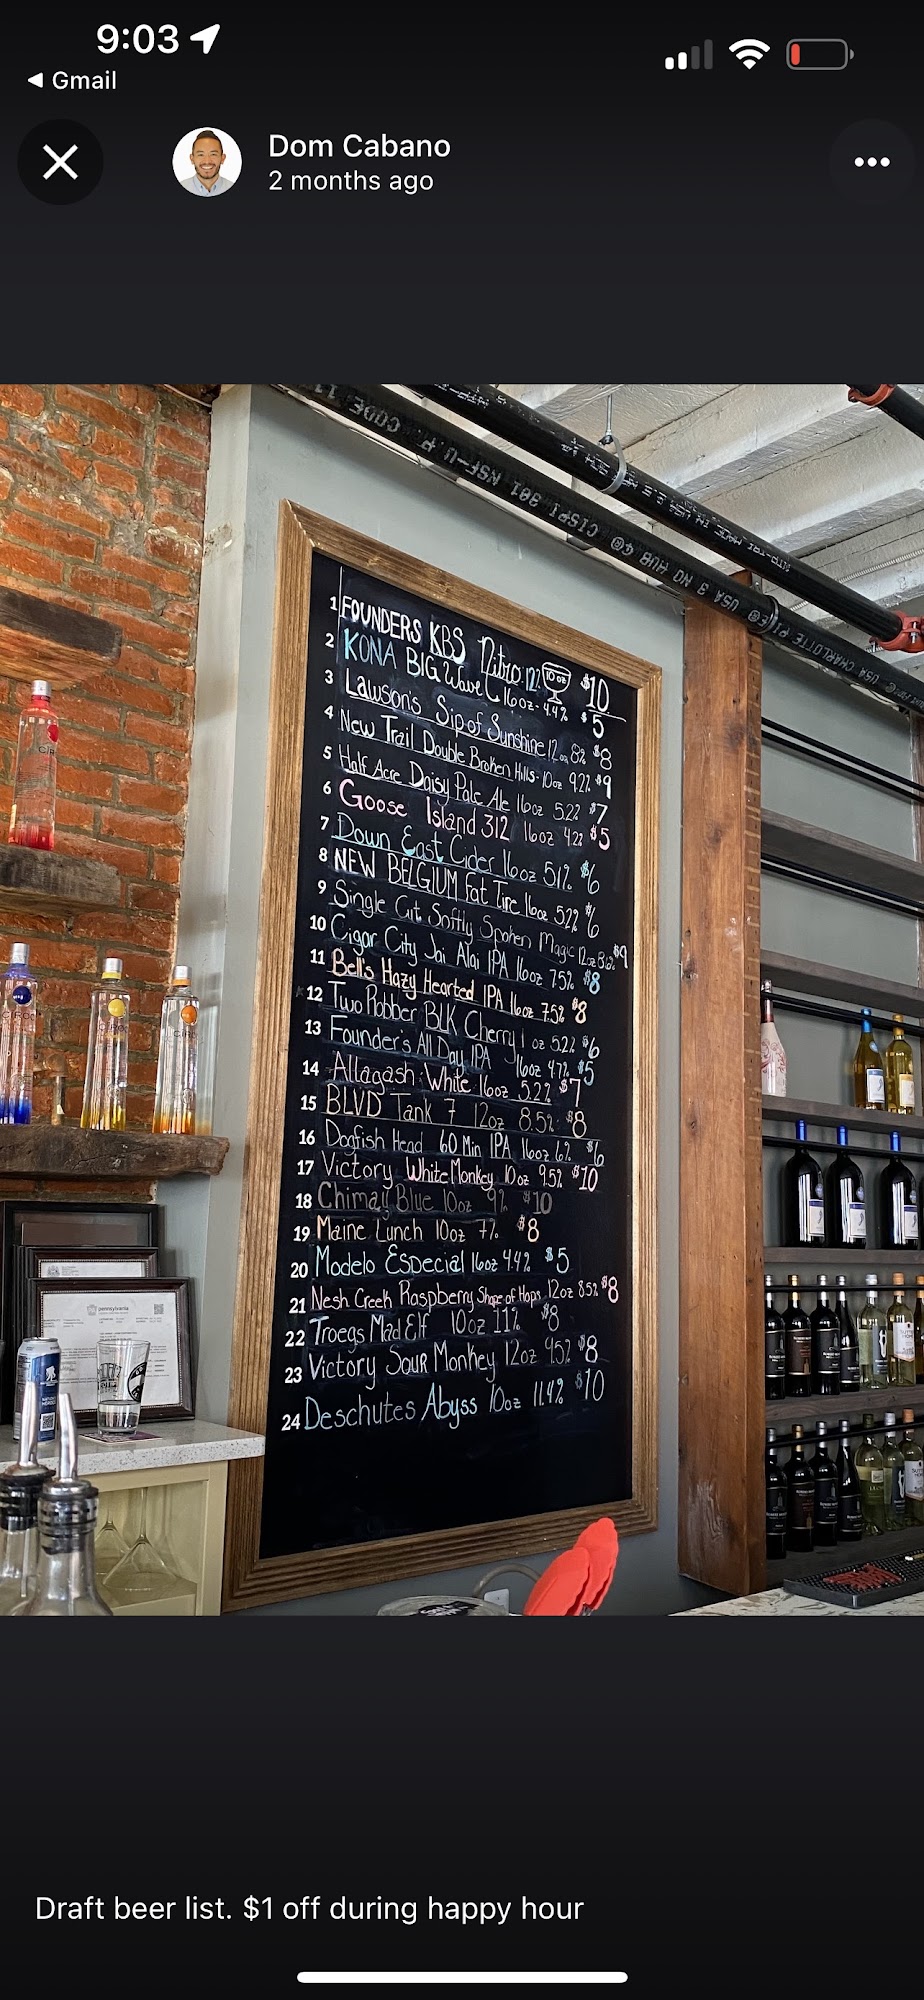 9:03
Gmail
Dom Cabano
2 months ago
1 FOUNDERS KBS Nitro 12% 10 oz $10
2 KONA BIG Wave 16oz - 4.4% $5
3 Lawson's Sip of Sunshine 12oz 8% $8
4 New Trail Double Broken Hills - 10oz 9.2% $9
5 Half Acre Daisy Pale Ale 16oz 5.2% $7
6 Goose Island 312 16oz 4.2% $5
7 Down East Cider 16oz 5.1% $6
8 NEW BELGIUM Fat Tire 16oz 5.2% $6
9 Single Cut Softly Spoken Magic 12oz 8.6% $9
10 Cigar City Jai Alai IPA 16oz 7.5% $8
11 Bell's Hazy Hearted IPA 16oz 7.5% $8
12 Two Robber BLK Cherry 1 oz 5.2% $6
13 Founder's All Day IPA 16oz 4.7% $5
14 Allagash White 16oz 5.2% $7
15 BLVD Tank 7 12oz 8.5% $8
16 Dogfish Head 60 Min IPA 16oz 6% $6
17 Victory White Monkey 10oz 9.5% $10
18 Chimay Blue 10oz 9% $10
19 Maine Lunch 10oz 7% $8
20 Modelo Especial 16oz 4.4% $5
21 Nesh Creek Raspberry Shape of Hops 12oz 8.5% $8
22 Troegs Mad Elf 10oz 11% $8
23 Victory Sour Monkey 12oz 9.5% $8
24 Deschutes Abyss 10oz 11.4% $10
USA CHARLOTTE PIPE® USA 3 NO HUB 40 ® CISPI 301 NSF-U.P. CODE
pennsylvania
CIROC
Draft beer list. $1 off during happy hour